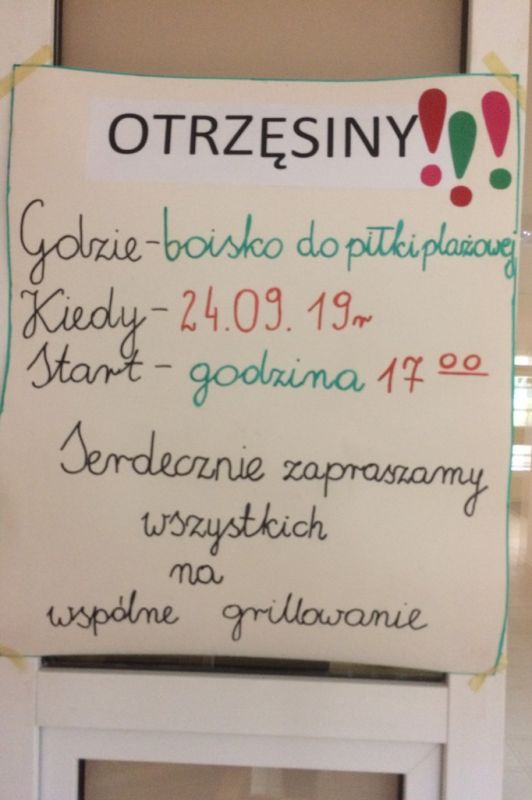 OTRZĘSINY!!!
Gdzie - boisko do piłki plażowej
Kiedy - 24.09.19r
Start - godzina 17 00
Serdecznie zapraszamy
wszystkich
na
wspólne grillowanie